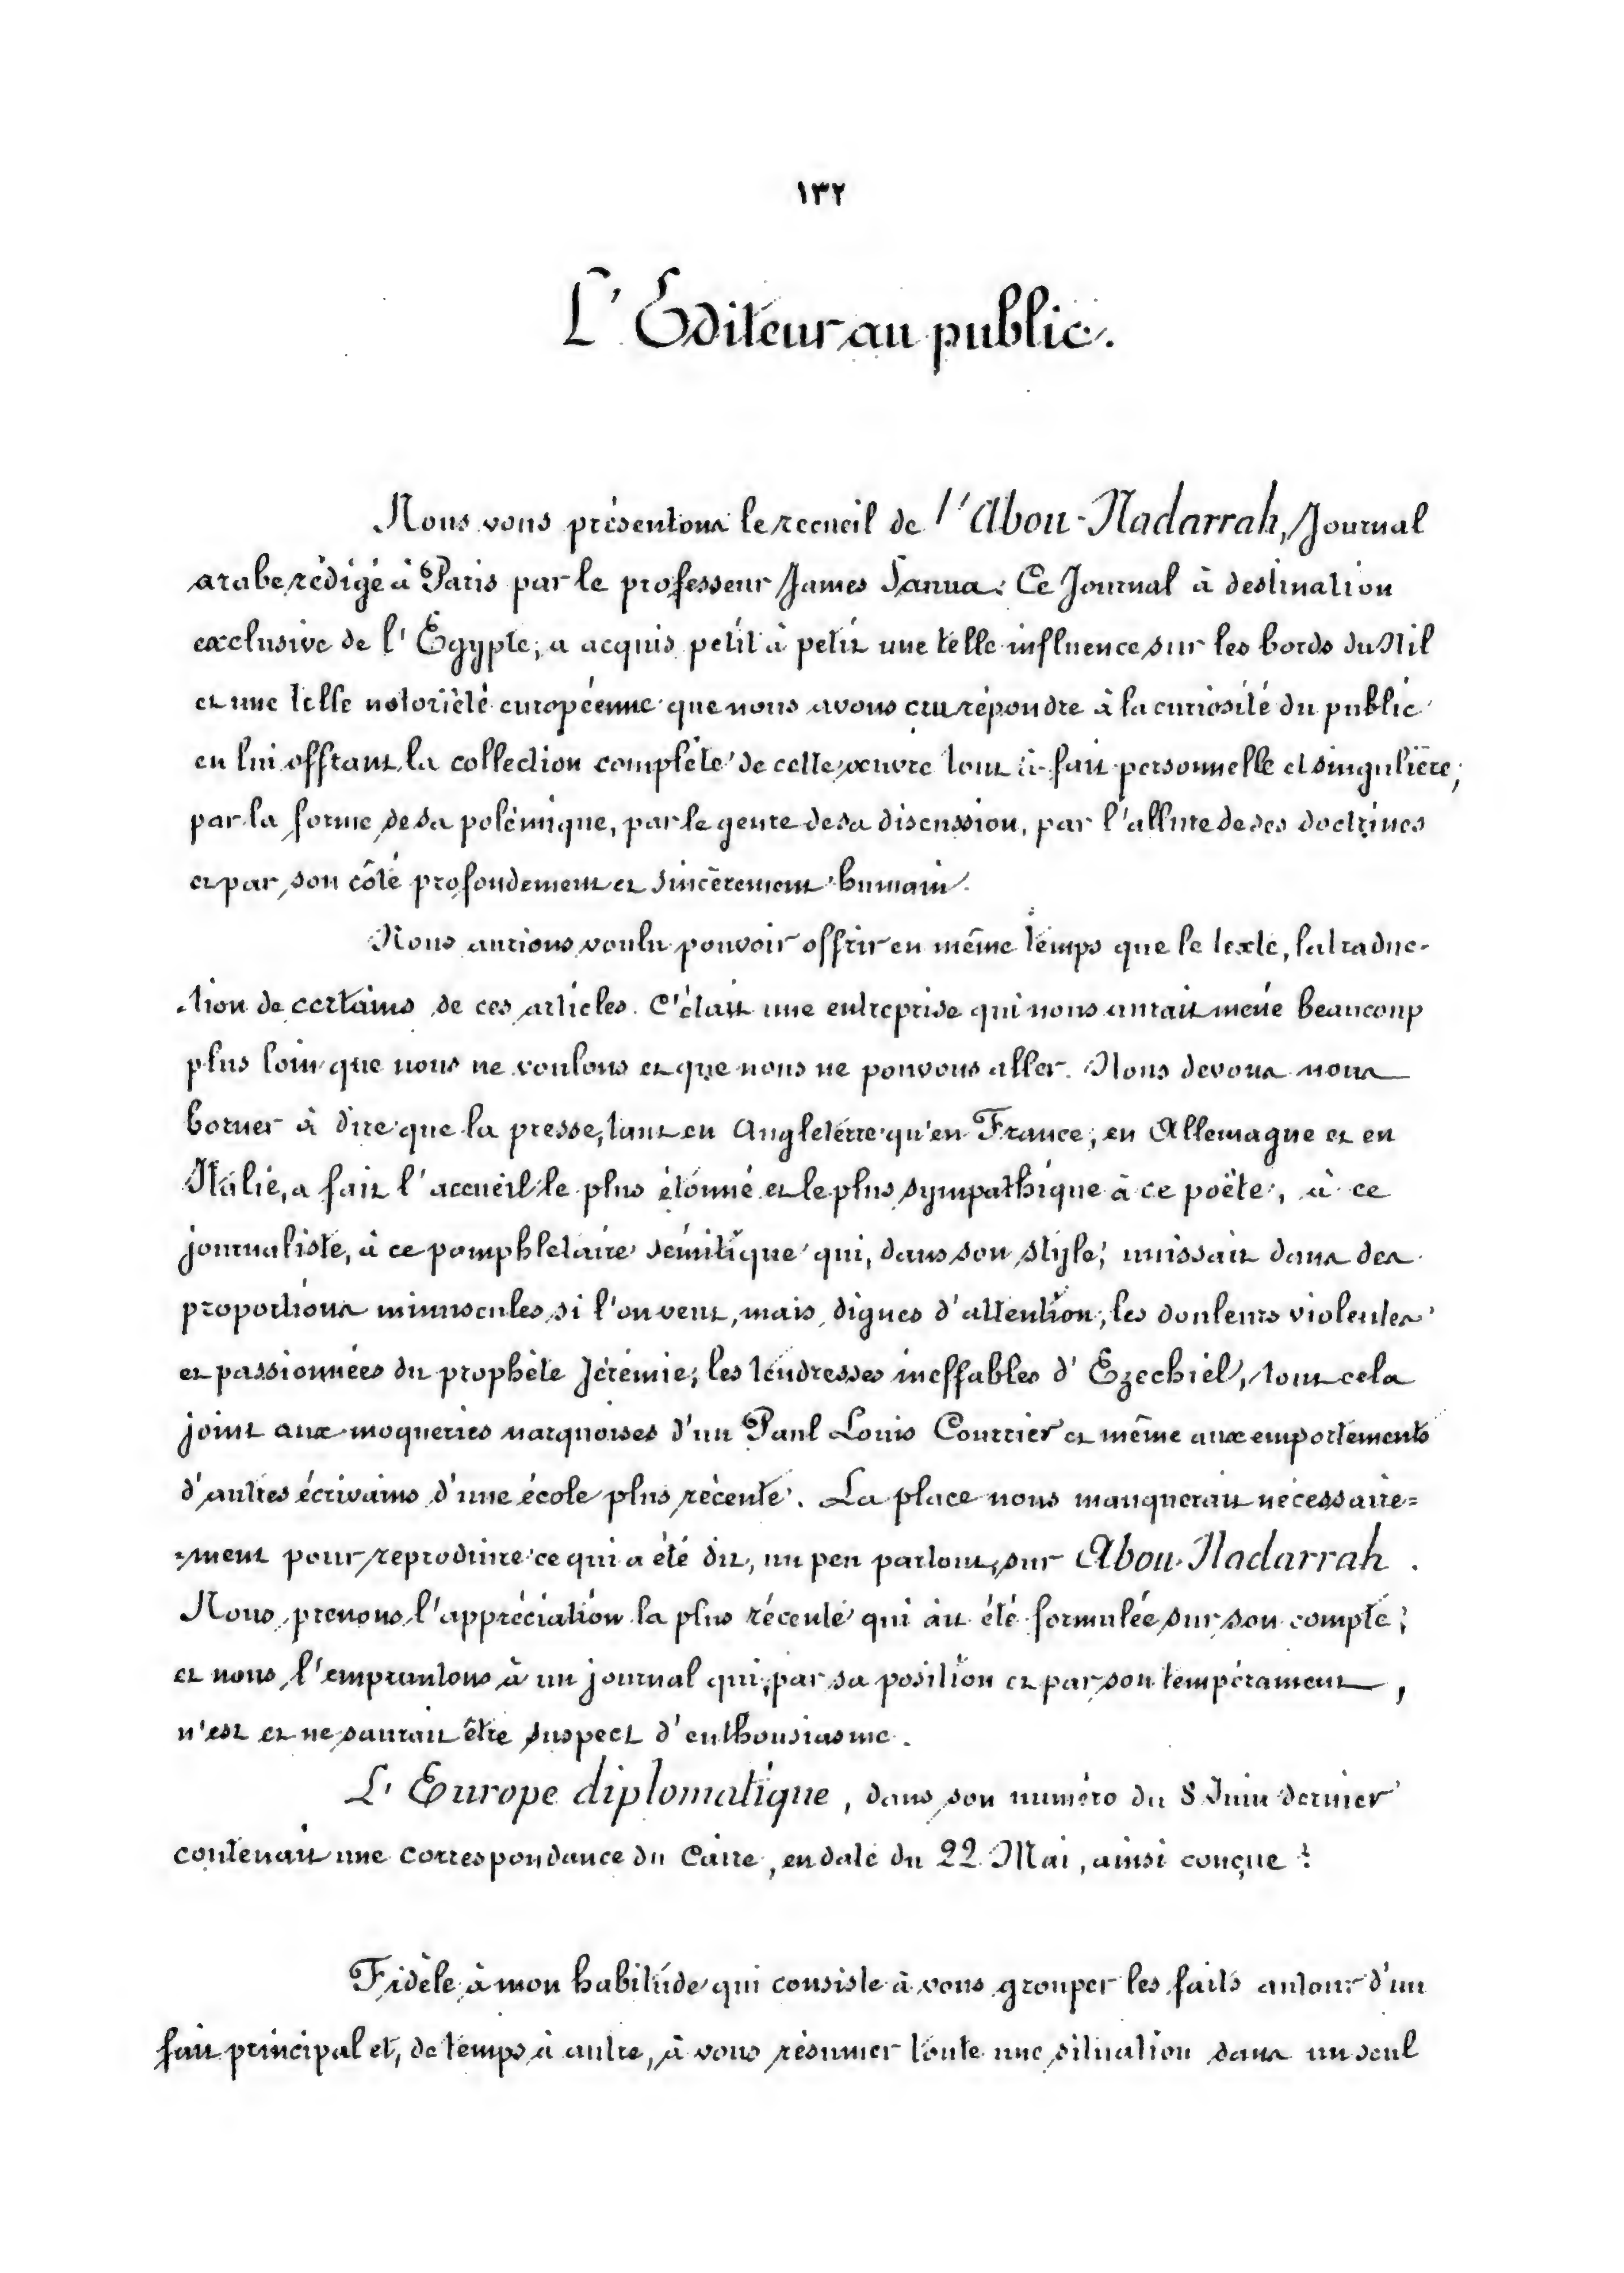 ١٣٢
L'Editeur au public.
Nous vous présentons le recueil de l'Abou-Nadarrah, Journal
arabe rédigé à Paris par le professeur James Sanua. Ce Journal à destination
exclusive de l'Égypte, a acquis petit à petit une telle influence sur les bords du Nil
et une telle notoriété européenne que nous avons cru répondre à la curiosité du public
en lui offrant la collection complète de cette œuvre tout à fait personnelle et singulière,
par la forme de sa polémique, par le genre de sa discussion, par l'allure de ses doctrines
et par son côté profondement et sincèrement humain.
Nous aurions voulu pouvoir offrir en même temps que le texte, la traduc-
-tion de certains de ces articles. C'était une entreprise qui nous aurait mené beaucoup
plus loin que nous ne voulons et que nous ne pouvons aller. Nous devons nous
borner à dire que la presse, tant en Angleterre qu'en France, en Allemagne et en
Italie, a fait l'accueil le plus étonné et le plus sympathique à ce poëte, à ce
journaliste, à ce pamphletaire sémitique qui, dans son style, unissait dans des
proportions minuscules si l'on veut, mais dignes d'attention, les douleurs violentes
et passionnées du prophète Jérémie, les tendresses ineffables d'Ezechiel, tout cela
joint aux moqueries narquoises d'un Paul Louis Courrier et même aux emportements
d'autres écrivains d'une école plus récente. La place nous manquerait nécessaire=
=ment pour reproduire ce qui a été dit, un peu partout, sur Abou-Nadarrah.
Nous prenons l'appréciation la plus récente qui ait été formulée sur son compte;
et nous l'empruntons à un journal qui, par sa position et par son tempérament,
n'est et ne saurait être suspect d'enthousiasme.
L'Europe diplomatique, dans son numéro du 8 Juin dernier
contenait une correspondance du Caire, en date du 22 Mai, ainsi conçue :
Fidèle à mon habitude qui consiste à vous grouper les faits autour d'un
fait principal et, de temps à autre, à vous résumer toute une situation dans un seul